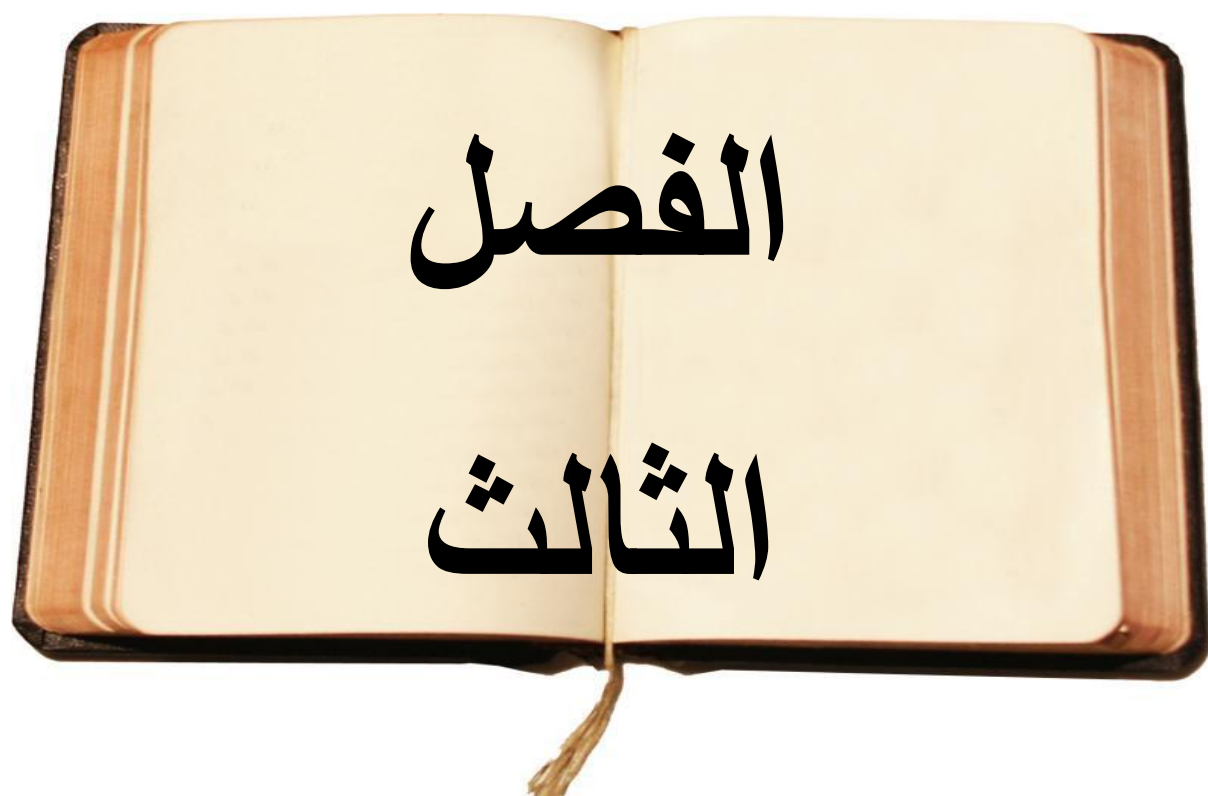 الفصل
الثالث